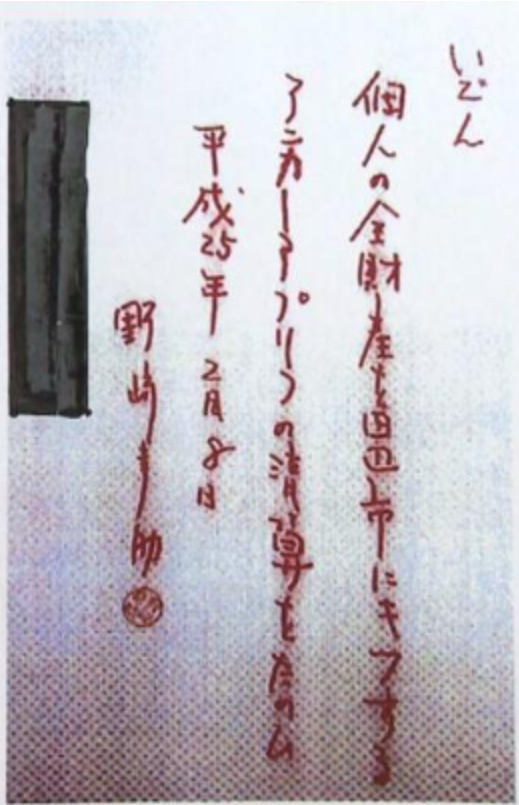 いごん
個人の全財産を田辺市にキフする
アンカーとアプリコの清算をたのム
平成25年2月8日
野崎幸助